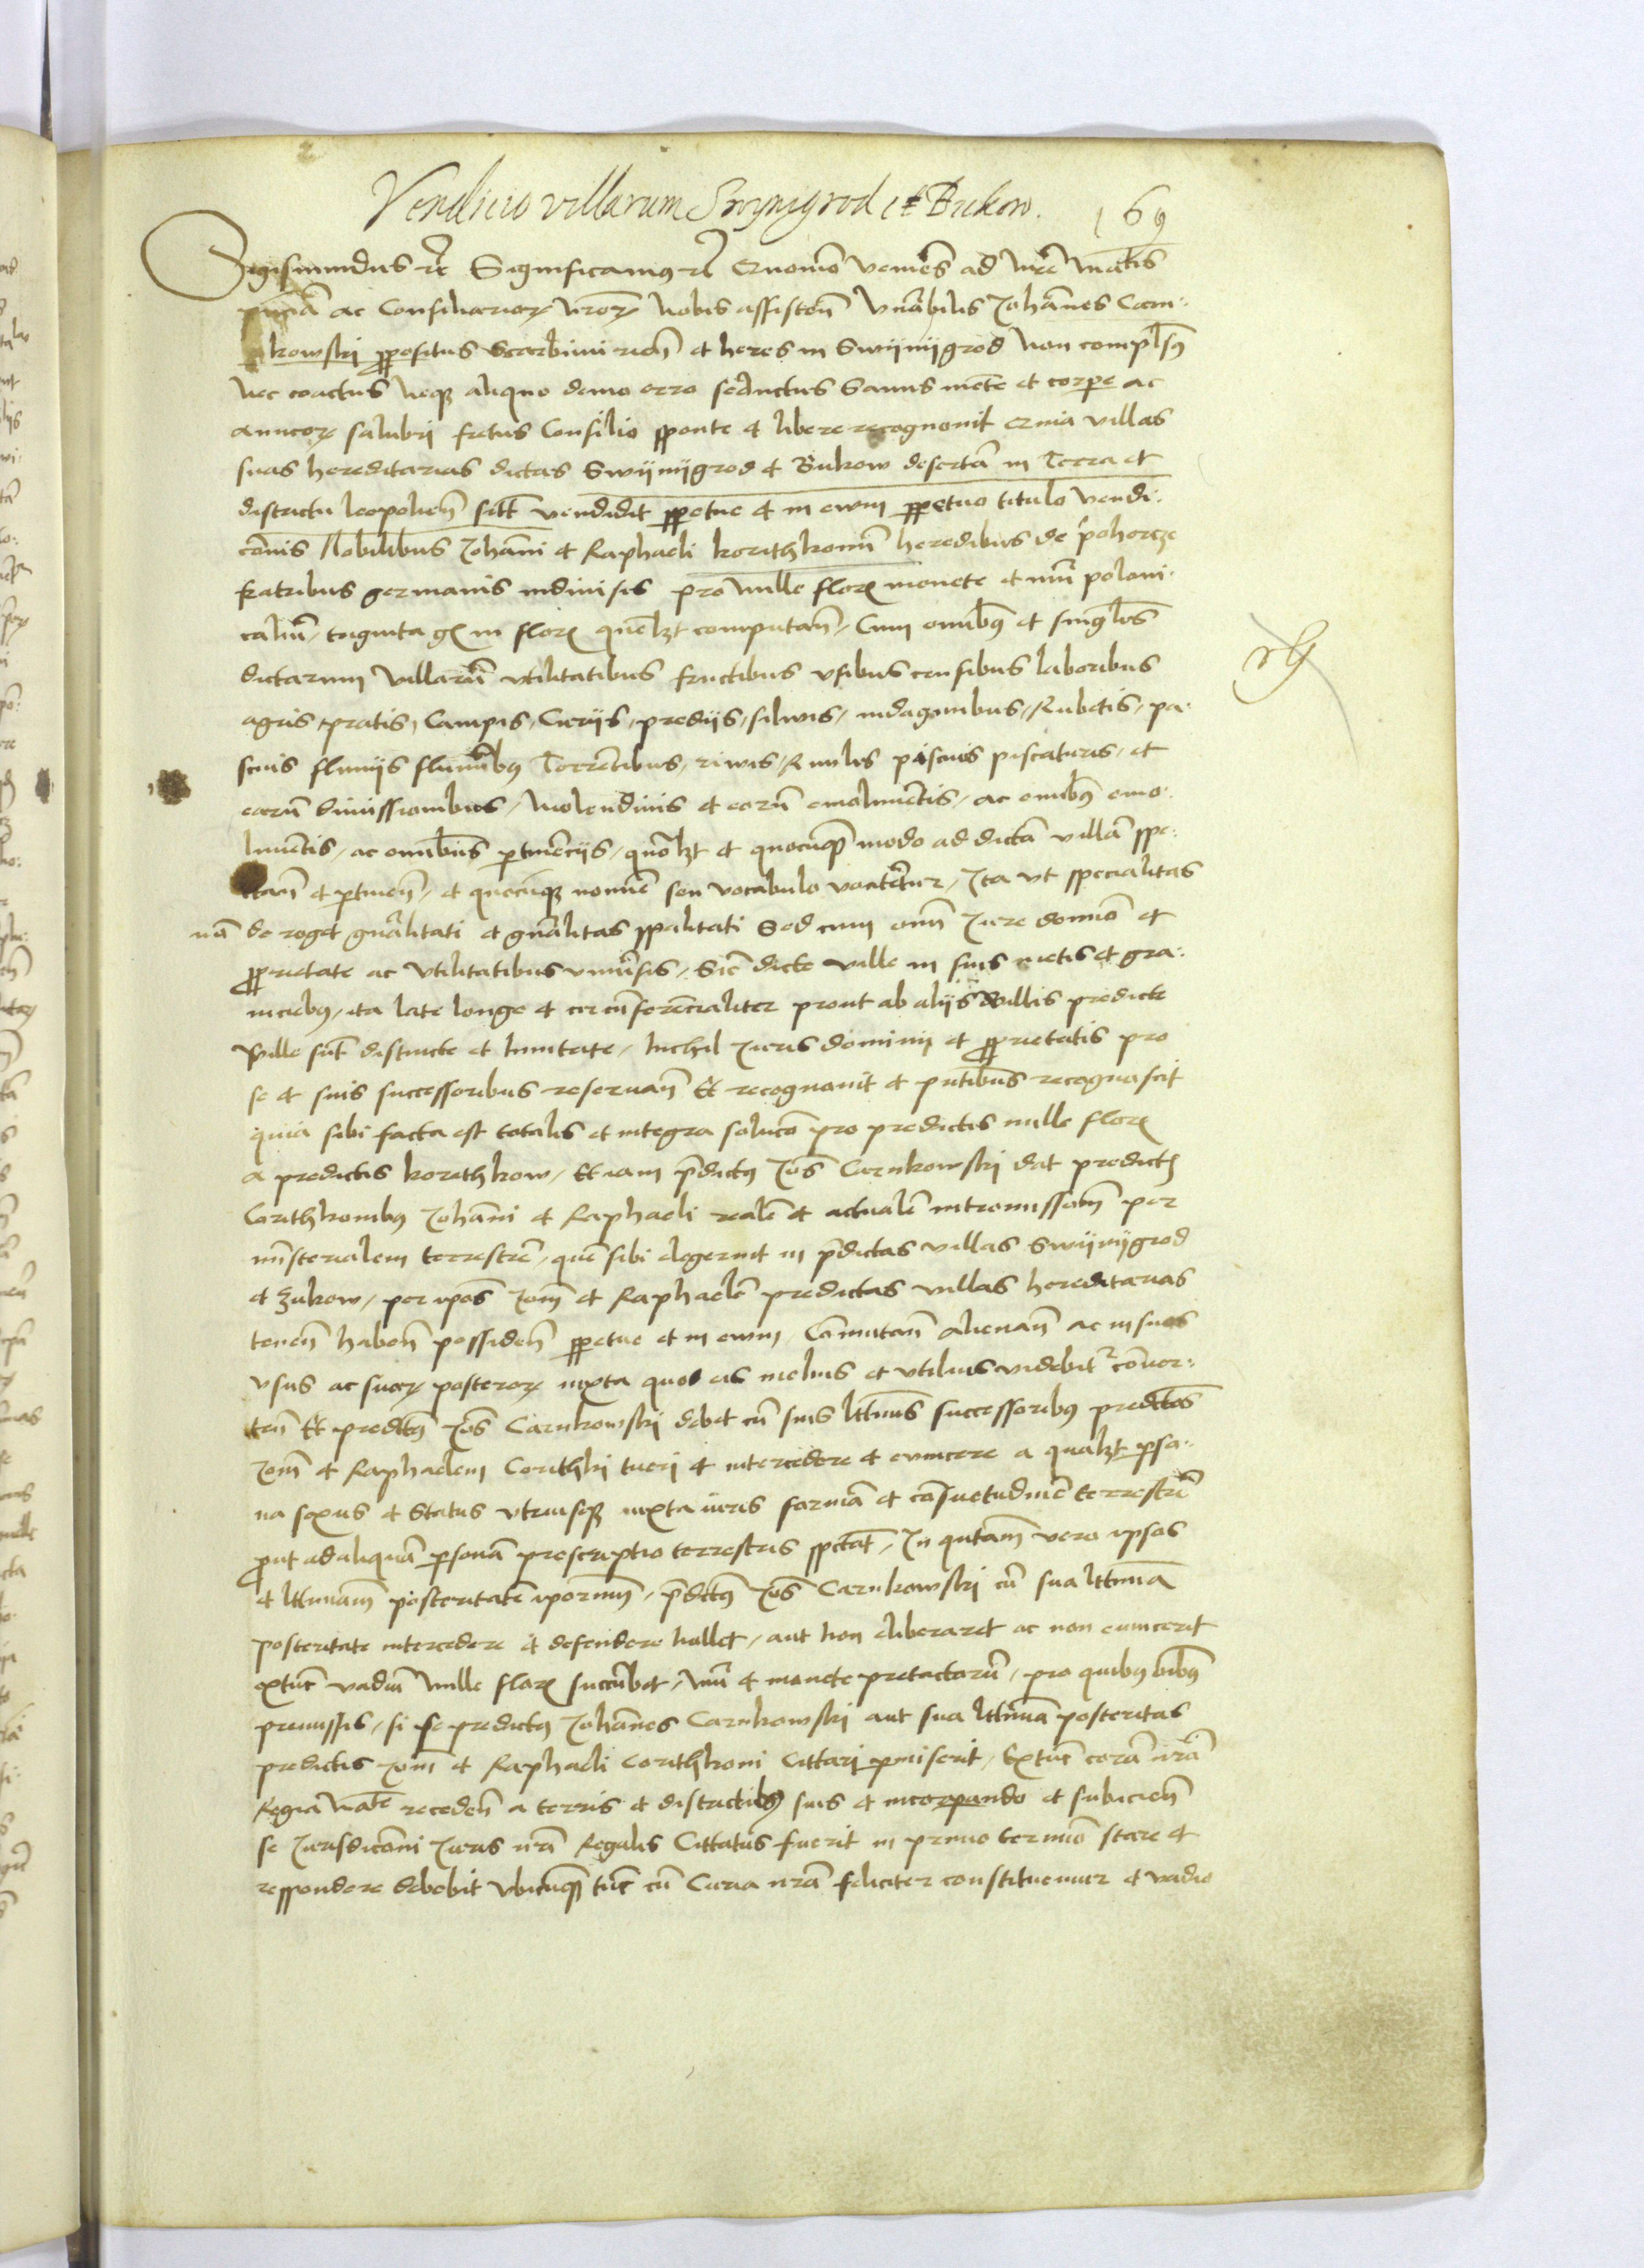 Vendicio villarum Swynygrod et Bukow. 169
Sigismundus etc Significamus etc Quomo veniens ad nre Matis
pnciā ac Consiliarior nror nobis assisten Vnrabilis Johānes Carn:
kowski ppositus Scarbimirien et heres in Swijnijgrod non compulsus
nec coactus neq aliquo demo erro seductus Sanus mēte et corpe ac
amicor salubri fretus Consilio sponte et libere recognovit Quia villas
suas hereditarias dictas Swijnijgrod et Bukow desertā in Terra et
districtu leopolien sitt vendidit ppetue et in ewm ppetuo titulo vendi:
cōnis Nobilibus Johāni et Raphaeli korithkowm heredibus de pohorcze
fratribus germanis indivisis pro mille flor monete et num poloni:
caliū, triginta g in flor quēlzt computan, Cum omibus et singlis
dictarum villarū vtilitatibus fructibus vsibus censibus laboribus
agris pratis, Campis, Curijs, predijs, silwis, indaginibus, Rubetis, pa:
scuis fluvijs fluminibus Torrētibus, riwis, Rivulis piscinis piscaturis, et
earū dimissionibus, Molendinis et eorū emolimētis, ac omibus emo:
limētis, ac omibus ptinēcijs, quolzt et quocūq modo ad dictā villā spe:
ctan et ptinen, et quocūq nomie seu vocabulo vocētur, Ita vt specialitas
nō deroget gnralitati et gnralitas spalitati Sed cum omi Jure domio et
pprietate ac vtilitatibus vniūsis, Sic dicte ville in suis metis et gra:
niciebus, ita late longe et circūferēcialiter prout ab alijs villis predicte
ville sūt distincte et limitate, Nichil Juris dominij et pprietatis pro
se et suis successoribus reservan Et recognovit et pntibus recognoscit
quia sibi facta est totalis et integra soluco pro predictis mille flor
a predictis korithkow, Et iam pdictus Jos Carnkowski dat predictis
Corithkonibus Johāni et Raphaeli realē et actualē intromissiom per
mīsterialem terrestrē, quē sibi elegerint in pdictas villas Swijnijgrod
et Bukow, per ipos Jom et Raphaelē predictas villas hereditarias
tenen haben possiden ppetue et in ewm, Cōmutan alienan ac in suos
vsus ac suor posteror iuxta quod eis melius et vtilius videbitr cōver:
ten Et predictus Jos Carnkowski debet cū suis lttimis successoribus predictos
Jom et Raphaelem Corithki tueri et intercedere et evincere a qualzt pso:
na sexus et Status vtriusq iuxta iuris formā et cōsuetudinē terrestrē
put ad aliquā psonā prescriptio terrestris spctat, In qntam vero ipsos
et lttimam posteritatē iporum, pdictus Jos Carnkowski cū sua lttima
posteritate intercedere et defendere nollet, aut non eliberaret ac non evincerit
extūc vadiū mille flor succūbet, num et monete pretactorū, pro quibus oibus
premissis, si se predictus Johānes Carnkowski aut sua lttima posteritas
predictis Jom et Raphaeli Corithkoni Cittari pmiserit, Extūc corā nrā
Regia Mate receden a terris et districtibus suis et incorpando et subicien
se Jurisdicōni Juris nrā Regalis Cittatus fuerit in primo termio stare et
respondere debebit vbicūq tūc cū Curia nrā feliciter constituemur et vadio